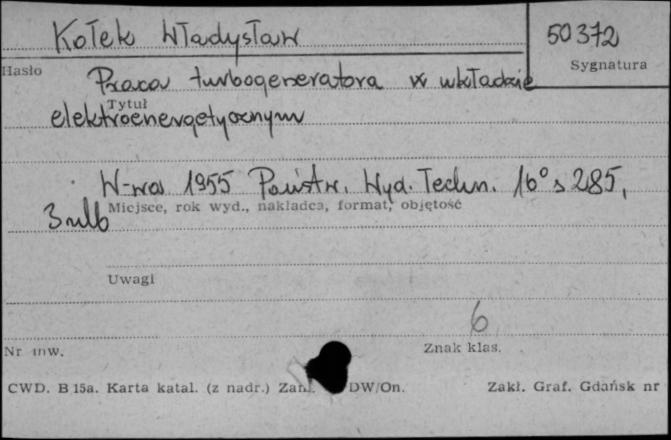 Kołek Władysław
50372
Hasło
Sygnatura
Praca turbogeneratora w układzie
Tytuł
elektroenergetycznym
W-wa 1955 Państw. Wyd. Techn. 16° s 285,
Miejsce, rok wyd., nakładca, format, objętość
3 nlb
Uwagi
6
Nr inw.
Znak klas.
CWD. B 15a. Karta katal. (z nadr.) Zam. DW/On.
Zakł. Graf. Gdańsk nr